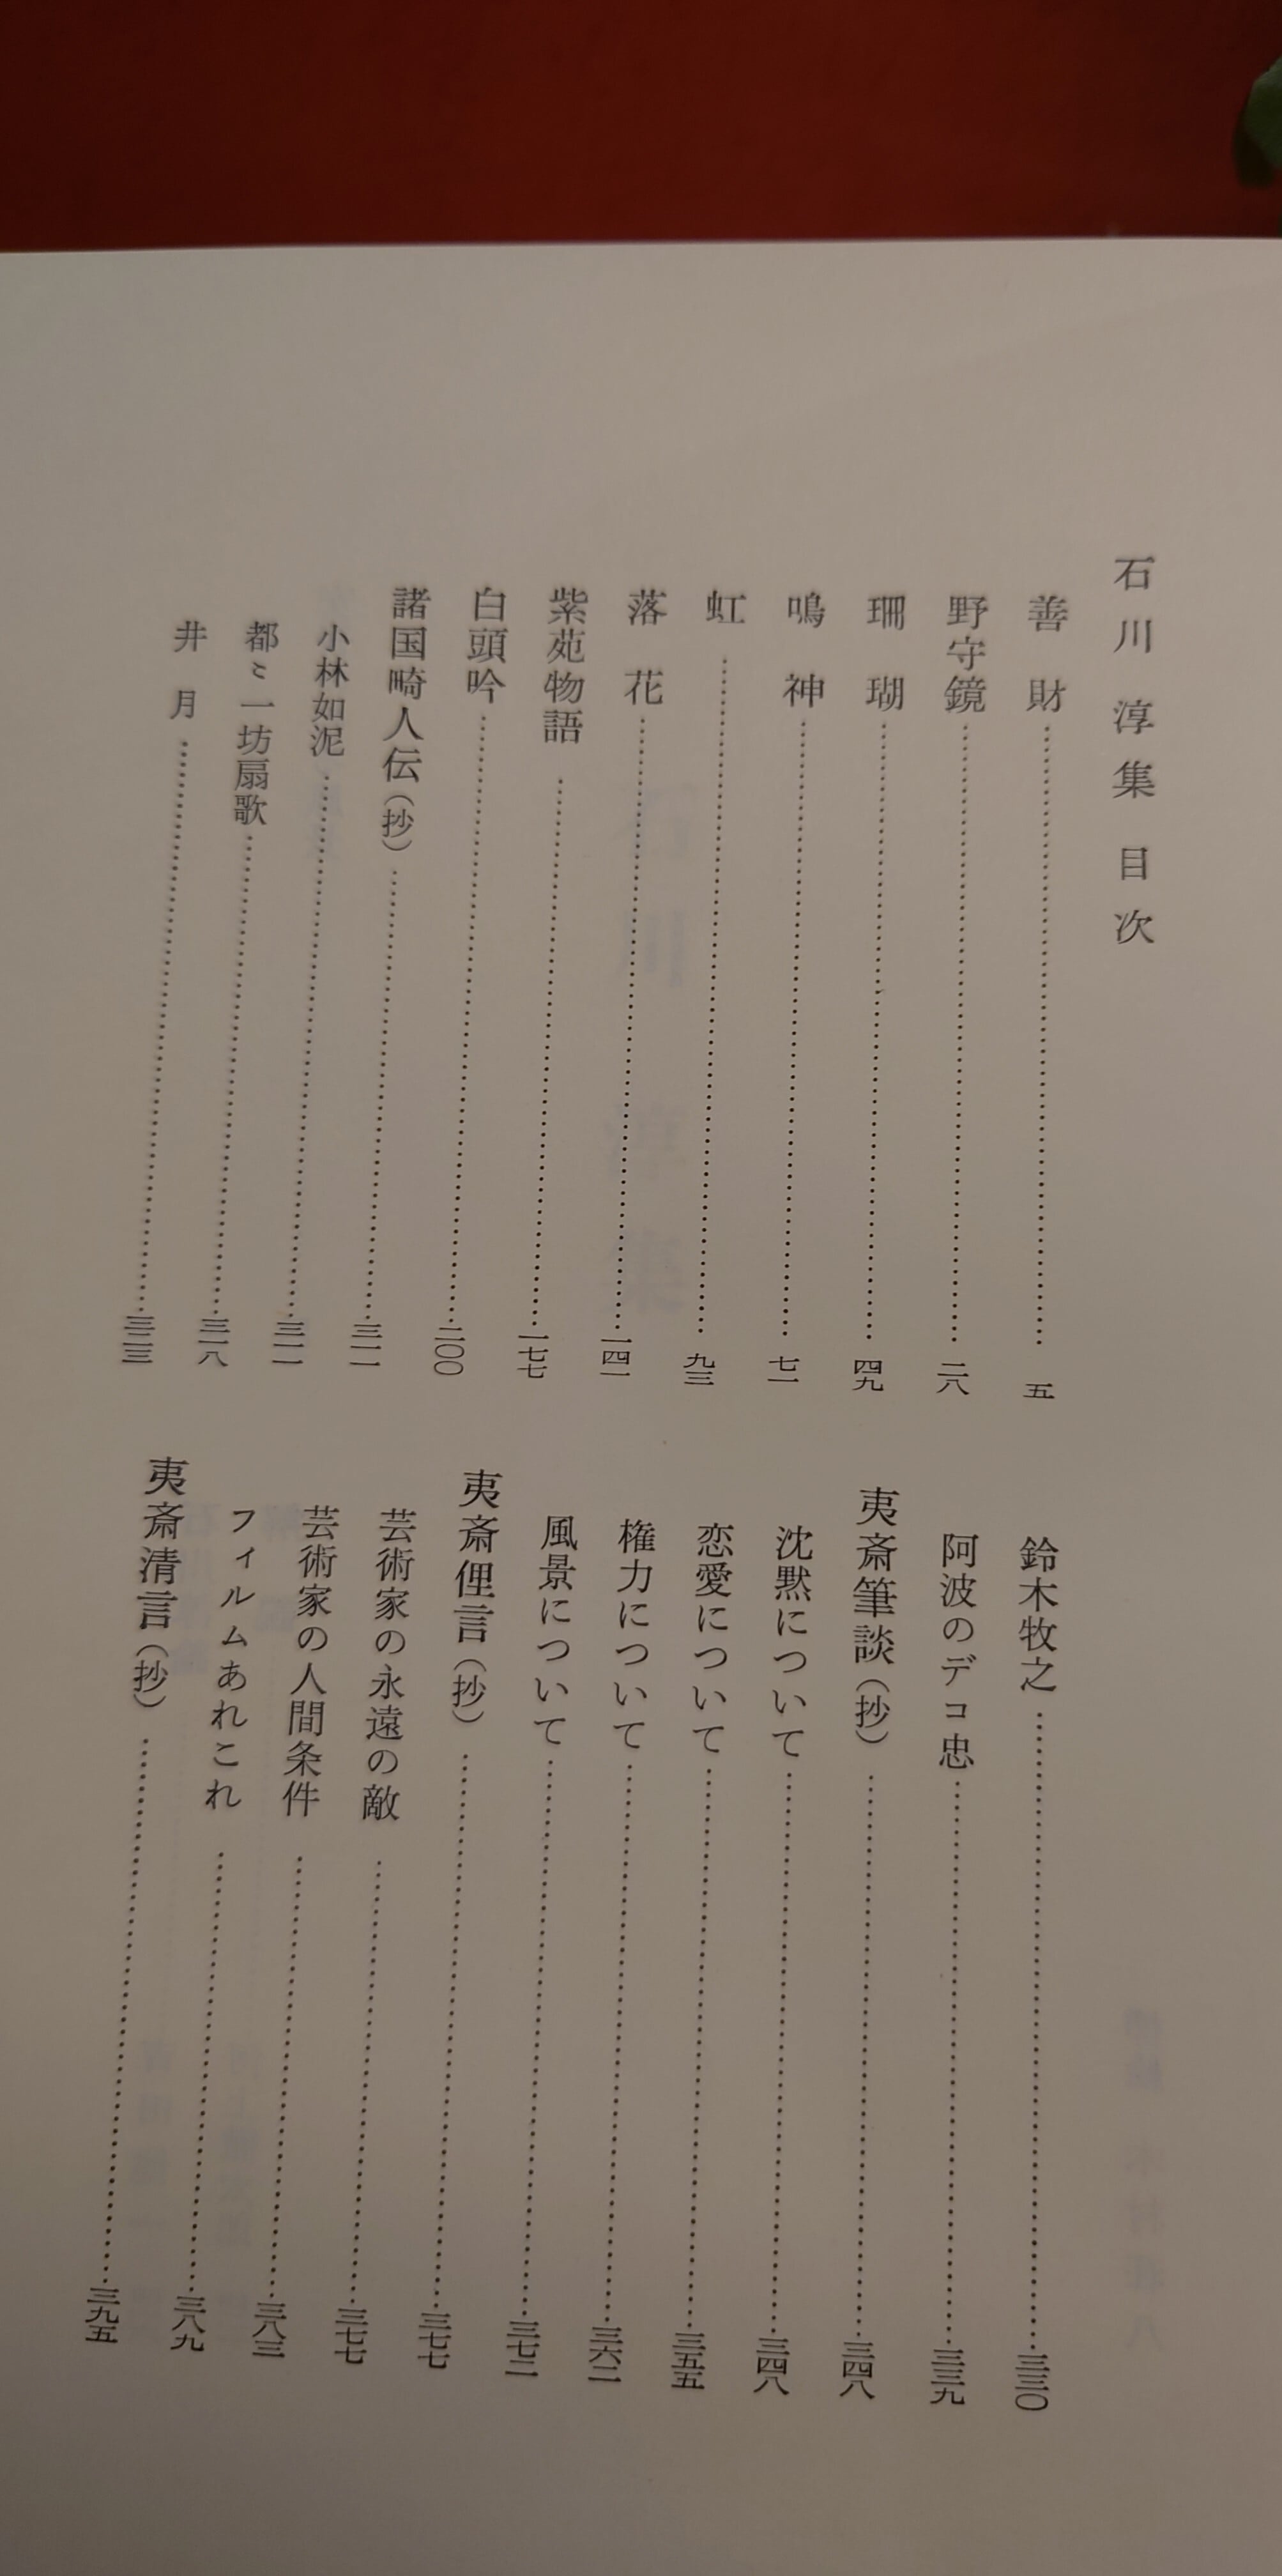 石川淳集 目次
善財……五
野守鏡……二八
珊瑚……四九
鳴神……七一
虹……九三
落花……一四一
紫苑物語……一七七
白頭吟……二〇〇
諸国畸人伝（抄）……三一一
小林如泥……三一一
都〻一坊扇歌……三一八
井月……三二三
鈴木牧之……三三〇
阿波のデコ忠……三三九
夷斎筆談（抄）……三四八
沈黙について……三四八
恋愛について……三五五
権力について……三六二
風景について……三七二
夷斎俚言（抄）……三七七
芸術家の永遠の敵……三七七
芸術家の人間条件……三八三
フィルムあれこれ……三八九
夷斎清言（抄）……三九五